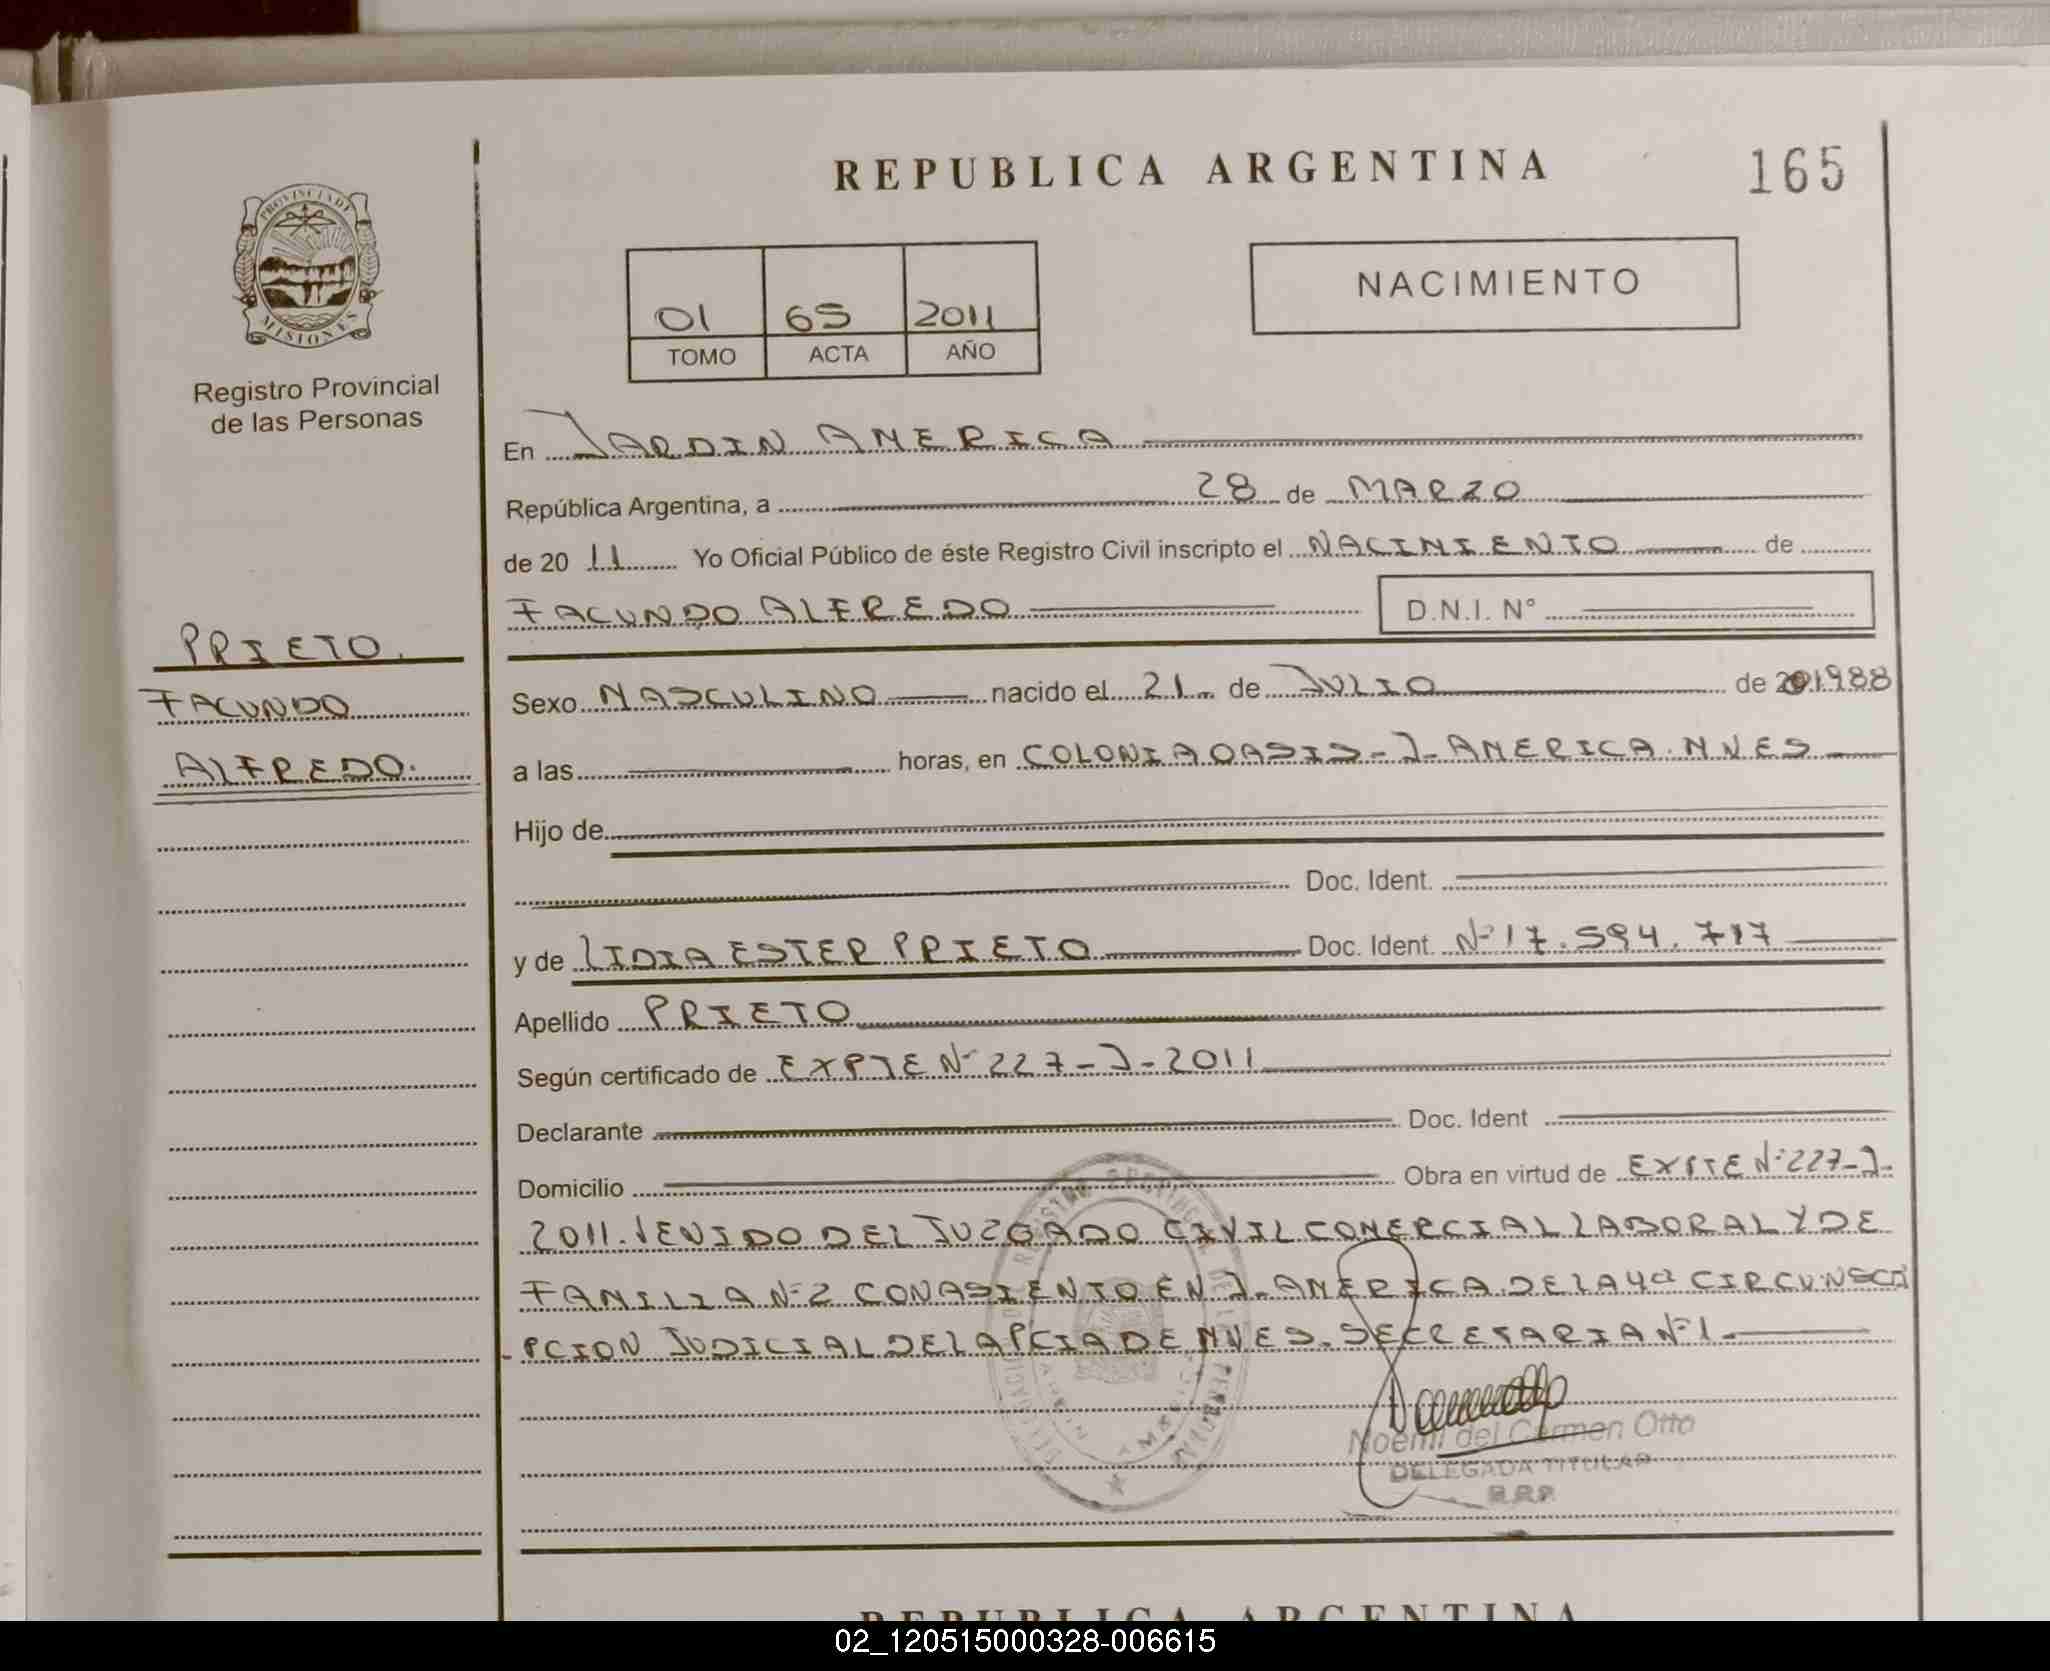 REPUBLICA ARGENTINA
165
PROVINCIA DE MISIONES
Registro Provincial
de las Personas
01 65 2011
TOMO ACTA AÑO
NACIMIENTO
En JARDIN AMERICA
República Argentina, a 28 de MARZO
de 20 11 Yo Oficial Público de éste Registro Civil inscripto el NACIMIENTO de
FACUNDO ALFREDO D.N.I. N°
PRIETO.
FACUNDO
ALFREDO.
Sexo MASCULINO nacido el 21 de JULIO de 201988
a las horas, en COLONIA OASIS - J- AMERICA. MNES
Hijo de
Doc. Ident.
y de LIDIA ESTER PRIETO Doc. Ident. N° 17.594.717
Apellido PRIETO
Según certificado de EXPTE N° 227-J-2011
Declarante Doc. Ident
Domicilio Obra en virtud de EXPTE N° 227-J-
2011. VENIDO DEL JUZGADO CIVIL COMERCIAL LABORAL Y DE
FAMILIA N°2 CON ASIENTO EN J. AMERICA. DE LA 4ta CIRCUNSCRI
-PCION JUDICIAL DE LA PCIA DE MNES. SECRETARIA N°1.
Noemi del Carmen Otto
DELEGADA TITULAR
R.R.P.
REPUBLICA ARGENTINA
02_120515000328-006615